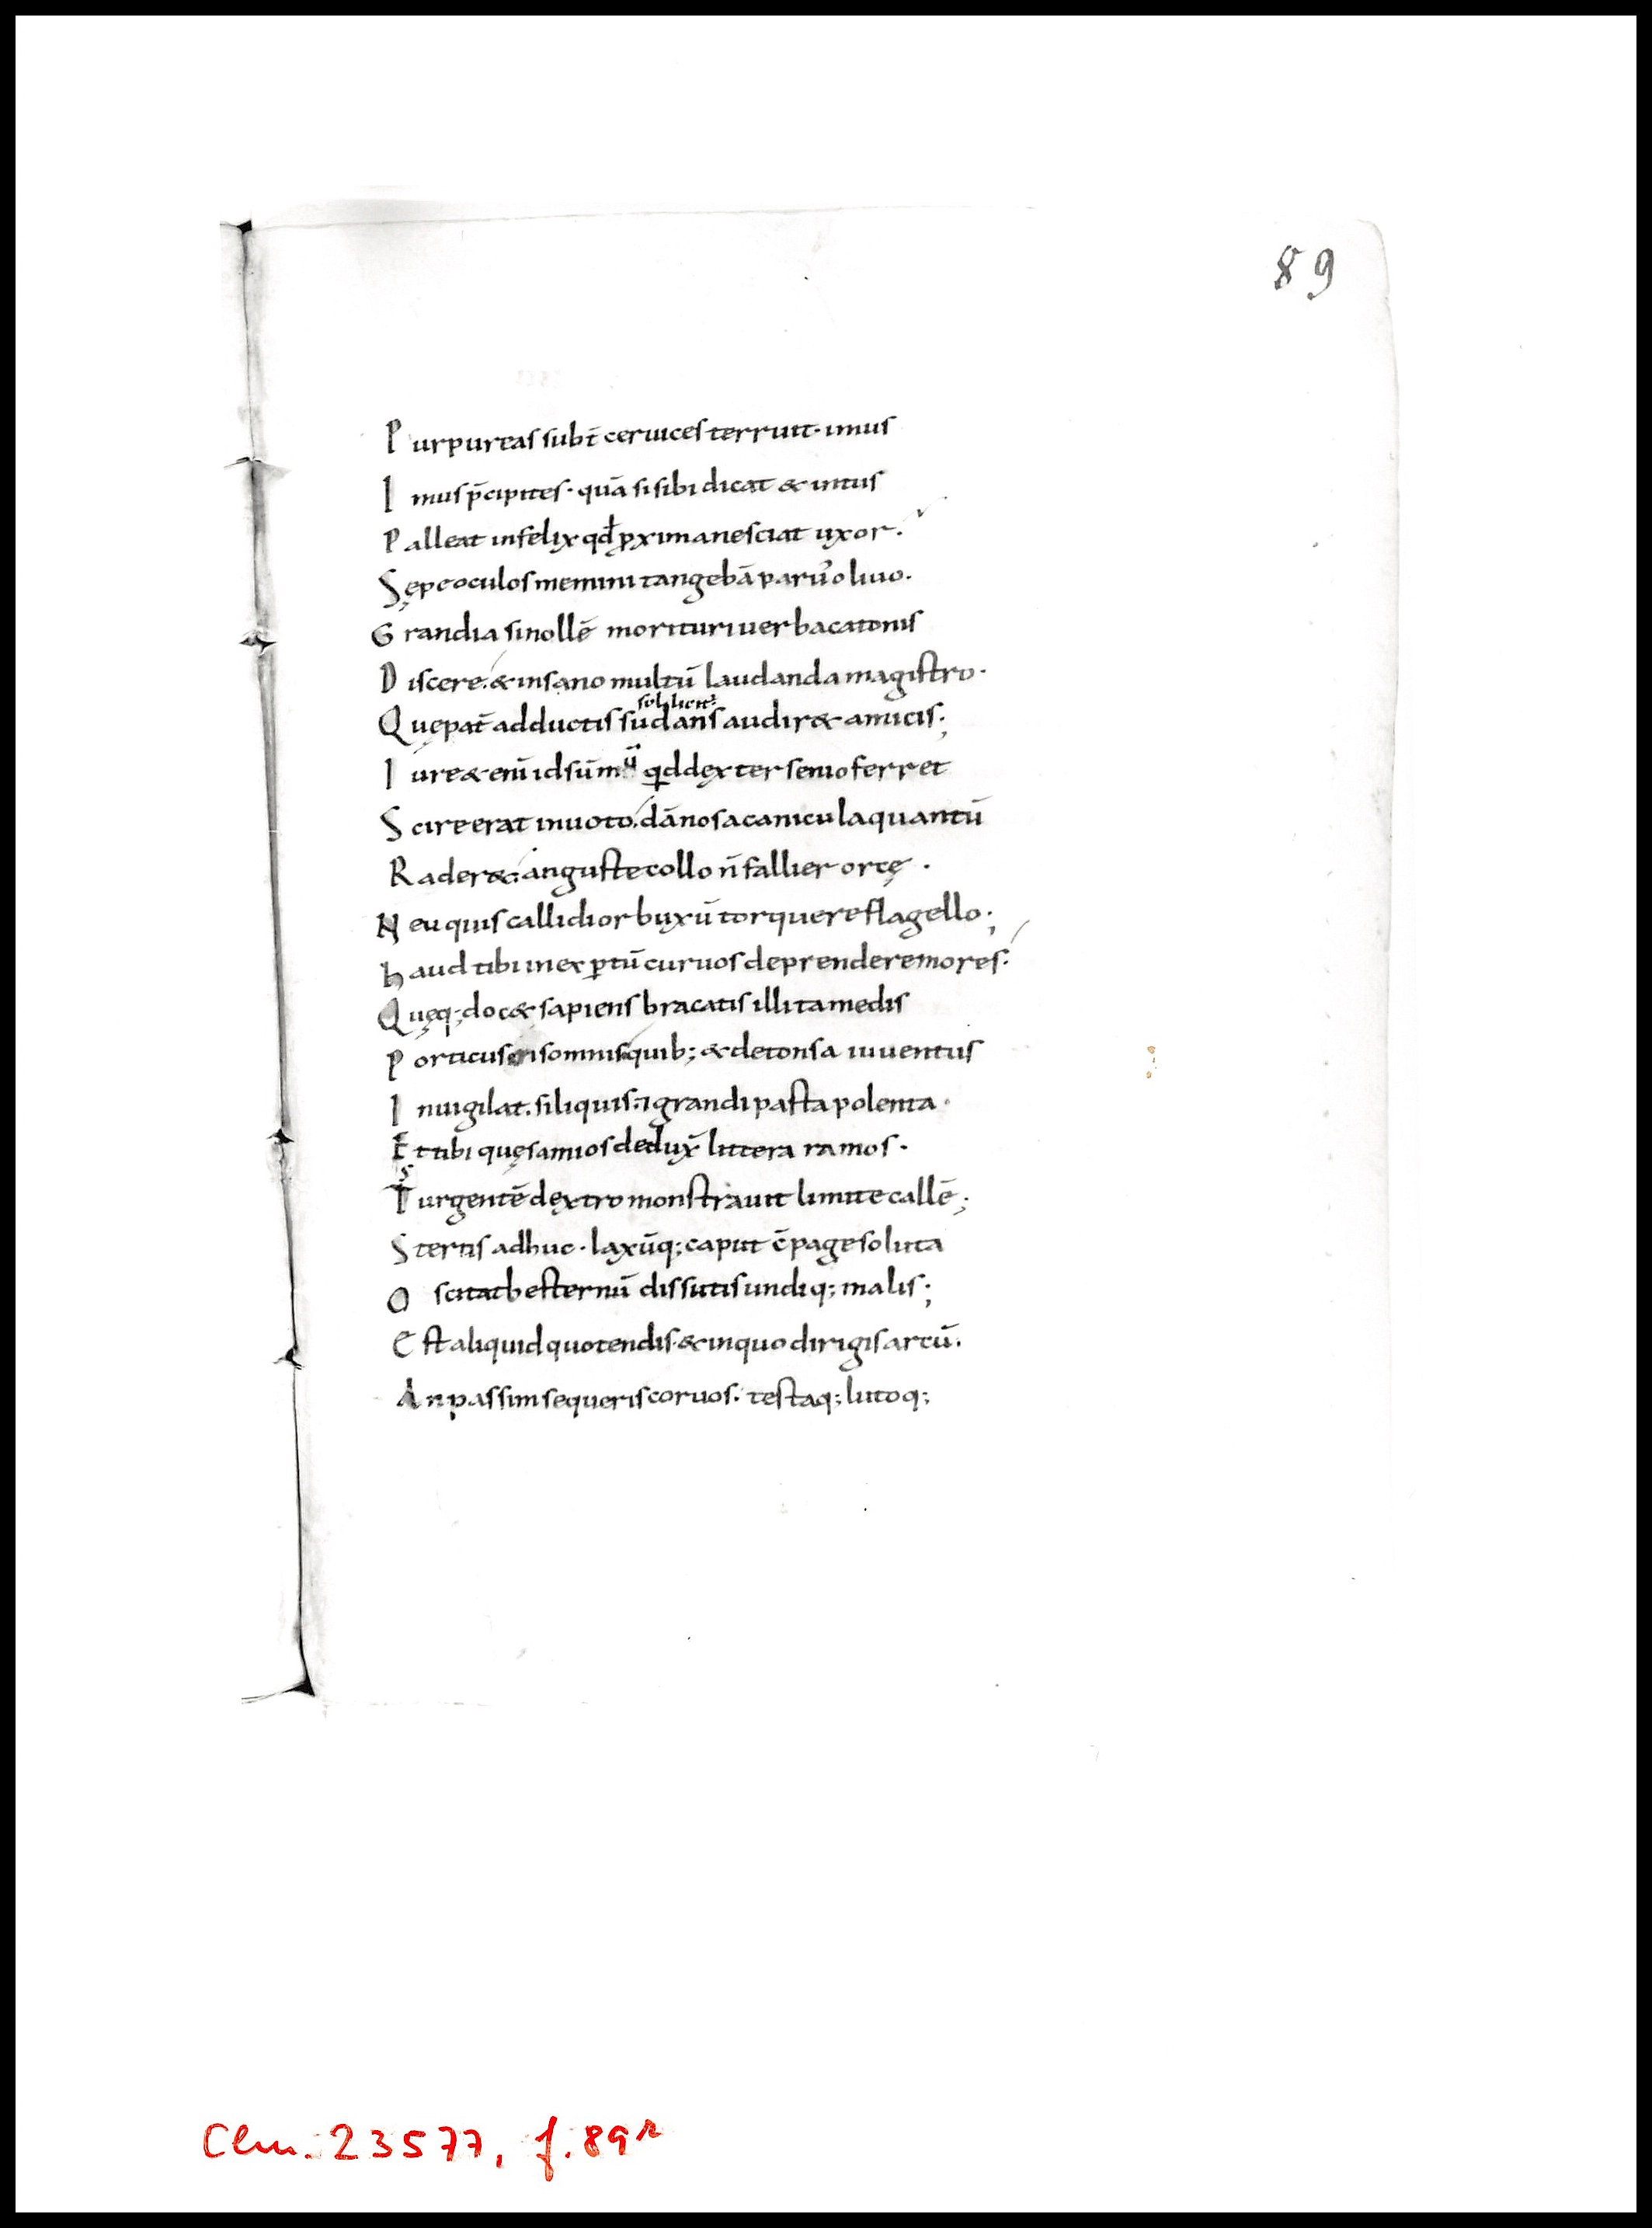 89
Purpureas subt̄ ceruices terruit· imus
Imus p̄cipites· quā si sibi dicat & intus
Palleat infelix qđ ꝓxima nesciat uxor.
Sępe oculos memini tangebā paruo oliuo.
Grandia si nollē morituri uerba catonis
Discere. & insano multū laudanda magistro.
sollicit᷑
Quę pat̄ adductis sudans audir& amicis;
Iure &eni᷑ id sūmū qđ dexter senio ferret
Scire erat in uoto. dānosa canicula quantū
Rader&. anguste collo n̄ fallier orcę.
Neu quis callidior buxū torquere flagello;
haud tibi inexꝑtū curuos deprendere mores.
Quęq; doc& sapiens bracatis illita medis
Porticus insomnis quib; & detonsa iuuentus
Inuigilat. siliquis. ⁊ grandi pasta polenta.
Et tibi quę samios dedux̄ littera ramos.
s
Turgentē dextro monstrauit limite callē;
Stertis adhuc· laxūq; caput c̄page soluta
Oscitat hesternū dissutis undiq; malis;
Est aliquid quo tendis. & in quo dirigis arcū.
An passim sequeris coruos. testaq; lutoq;
Clm. 23577, f. 89r